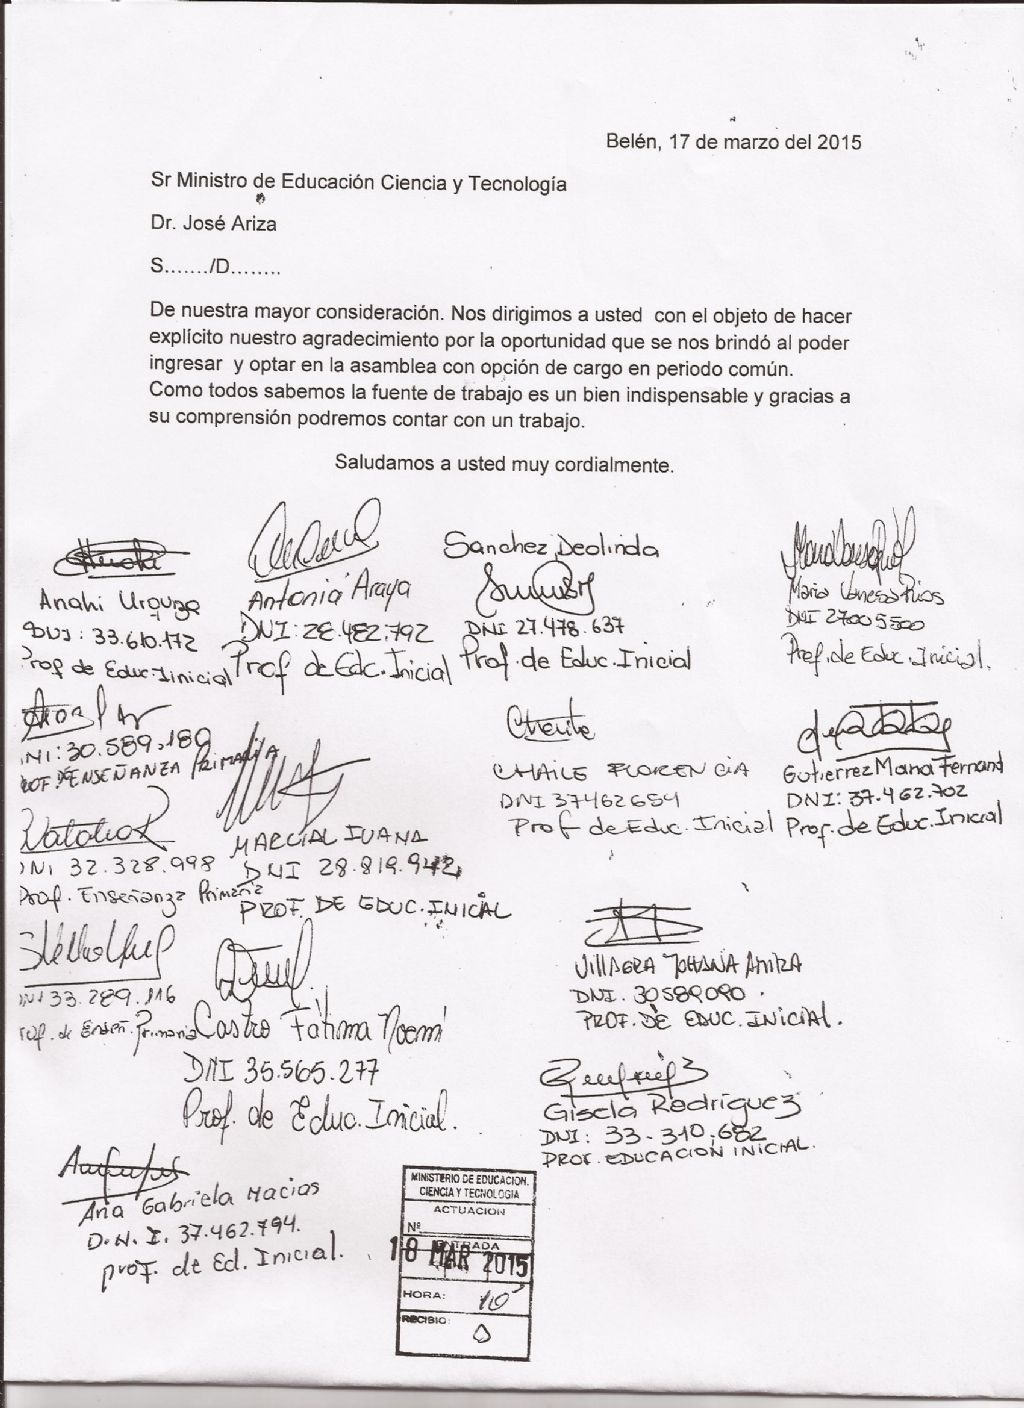 Belén, 17 de marzo del 2015
Sr Ministro de Educación Ciencia y Tecnología
Dr. José Ariza
S......./D........
De nuestra mayor consideración. Nos dirigimos a usted  con el objeto de hacer
explícito nuestro agradecimiento por la oportunidad que se nos brindó al poder
ingresar  y optar en la asamblea con opción de cargo en periodo común.
Como todos sabemos la fuente de trabajo es un bien indispensable y gracias a
su comprensión podremos contar con un trabajo.
Saludamos a usted muy cordialmente.
Anahi Urquiza
DNI: 33.610.172
Prof de Educ. Inicial
Antonia Araya
DNI: 28.482.792
Prof de Edc. Inicial
Sanchez, Deolinda
DNI 27.478.637
Prof. de Educ. Inicial
Maria Vanesa Rios
DNI 27005500
Prof. de Educ. Inicial.
DNI: 30.589.180
PROF. DE ENSEÑANZA PRIMARIA
CHAILE FLORENCIA
DNI 37462654
Prof de Educ. Inicial
Gutierrez Maria Fernand
DNI: 37.462.702
Prof. de Educ. Inicial
DNI 32.328.998
Prof. Enseñanza Primaria
MARCIAL IVANA
DNI 28.819.942
PROF. DE EDUC. INICIAL
DNI 33.289.116
Prof. de Enseñ. Primaria
Castro Fátima Noemí
DNI 35.565.277
Prof. de Educ. Inicial.
VILLAGRA JOHANA ANITZA
DNI. 30589090.
PROF. DE EDUC. INICIAL.
Gisela Rodríguez
DNI: 33-310.682
PROF. EDUCACION INICIAL.
Ana Gabriela Macias
D.N.I. 37.462.794.
prof. de Ed. Inicial.
MINISTERIO DE EDUCACION.
CIENCIA Y TECNOLOGIA
ACTUACION
Nº
ENTRADA
18 MAR 2015
HORA: 10
RECIBIO: